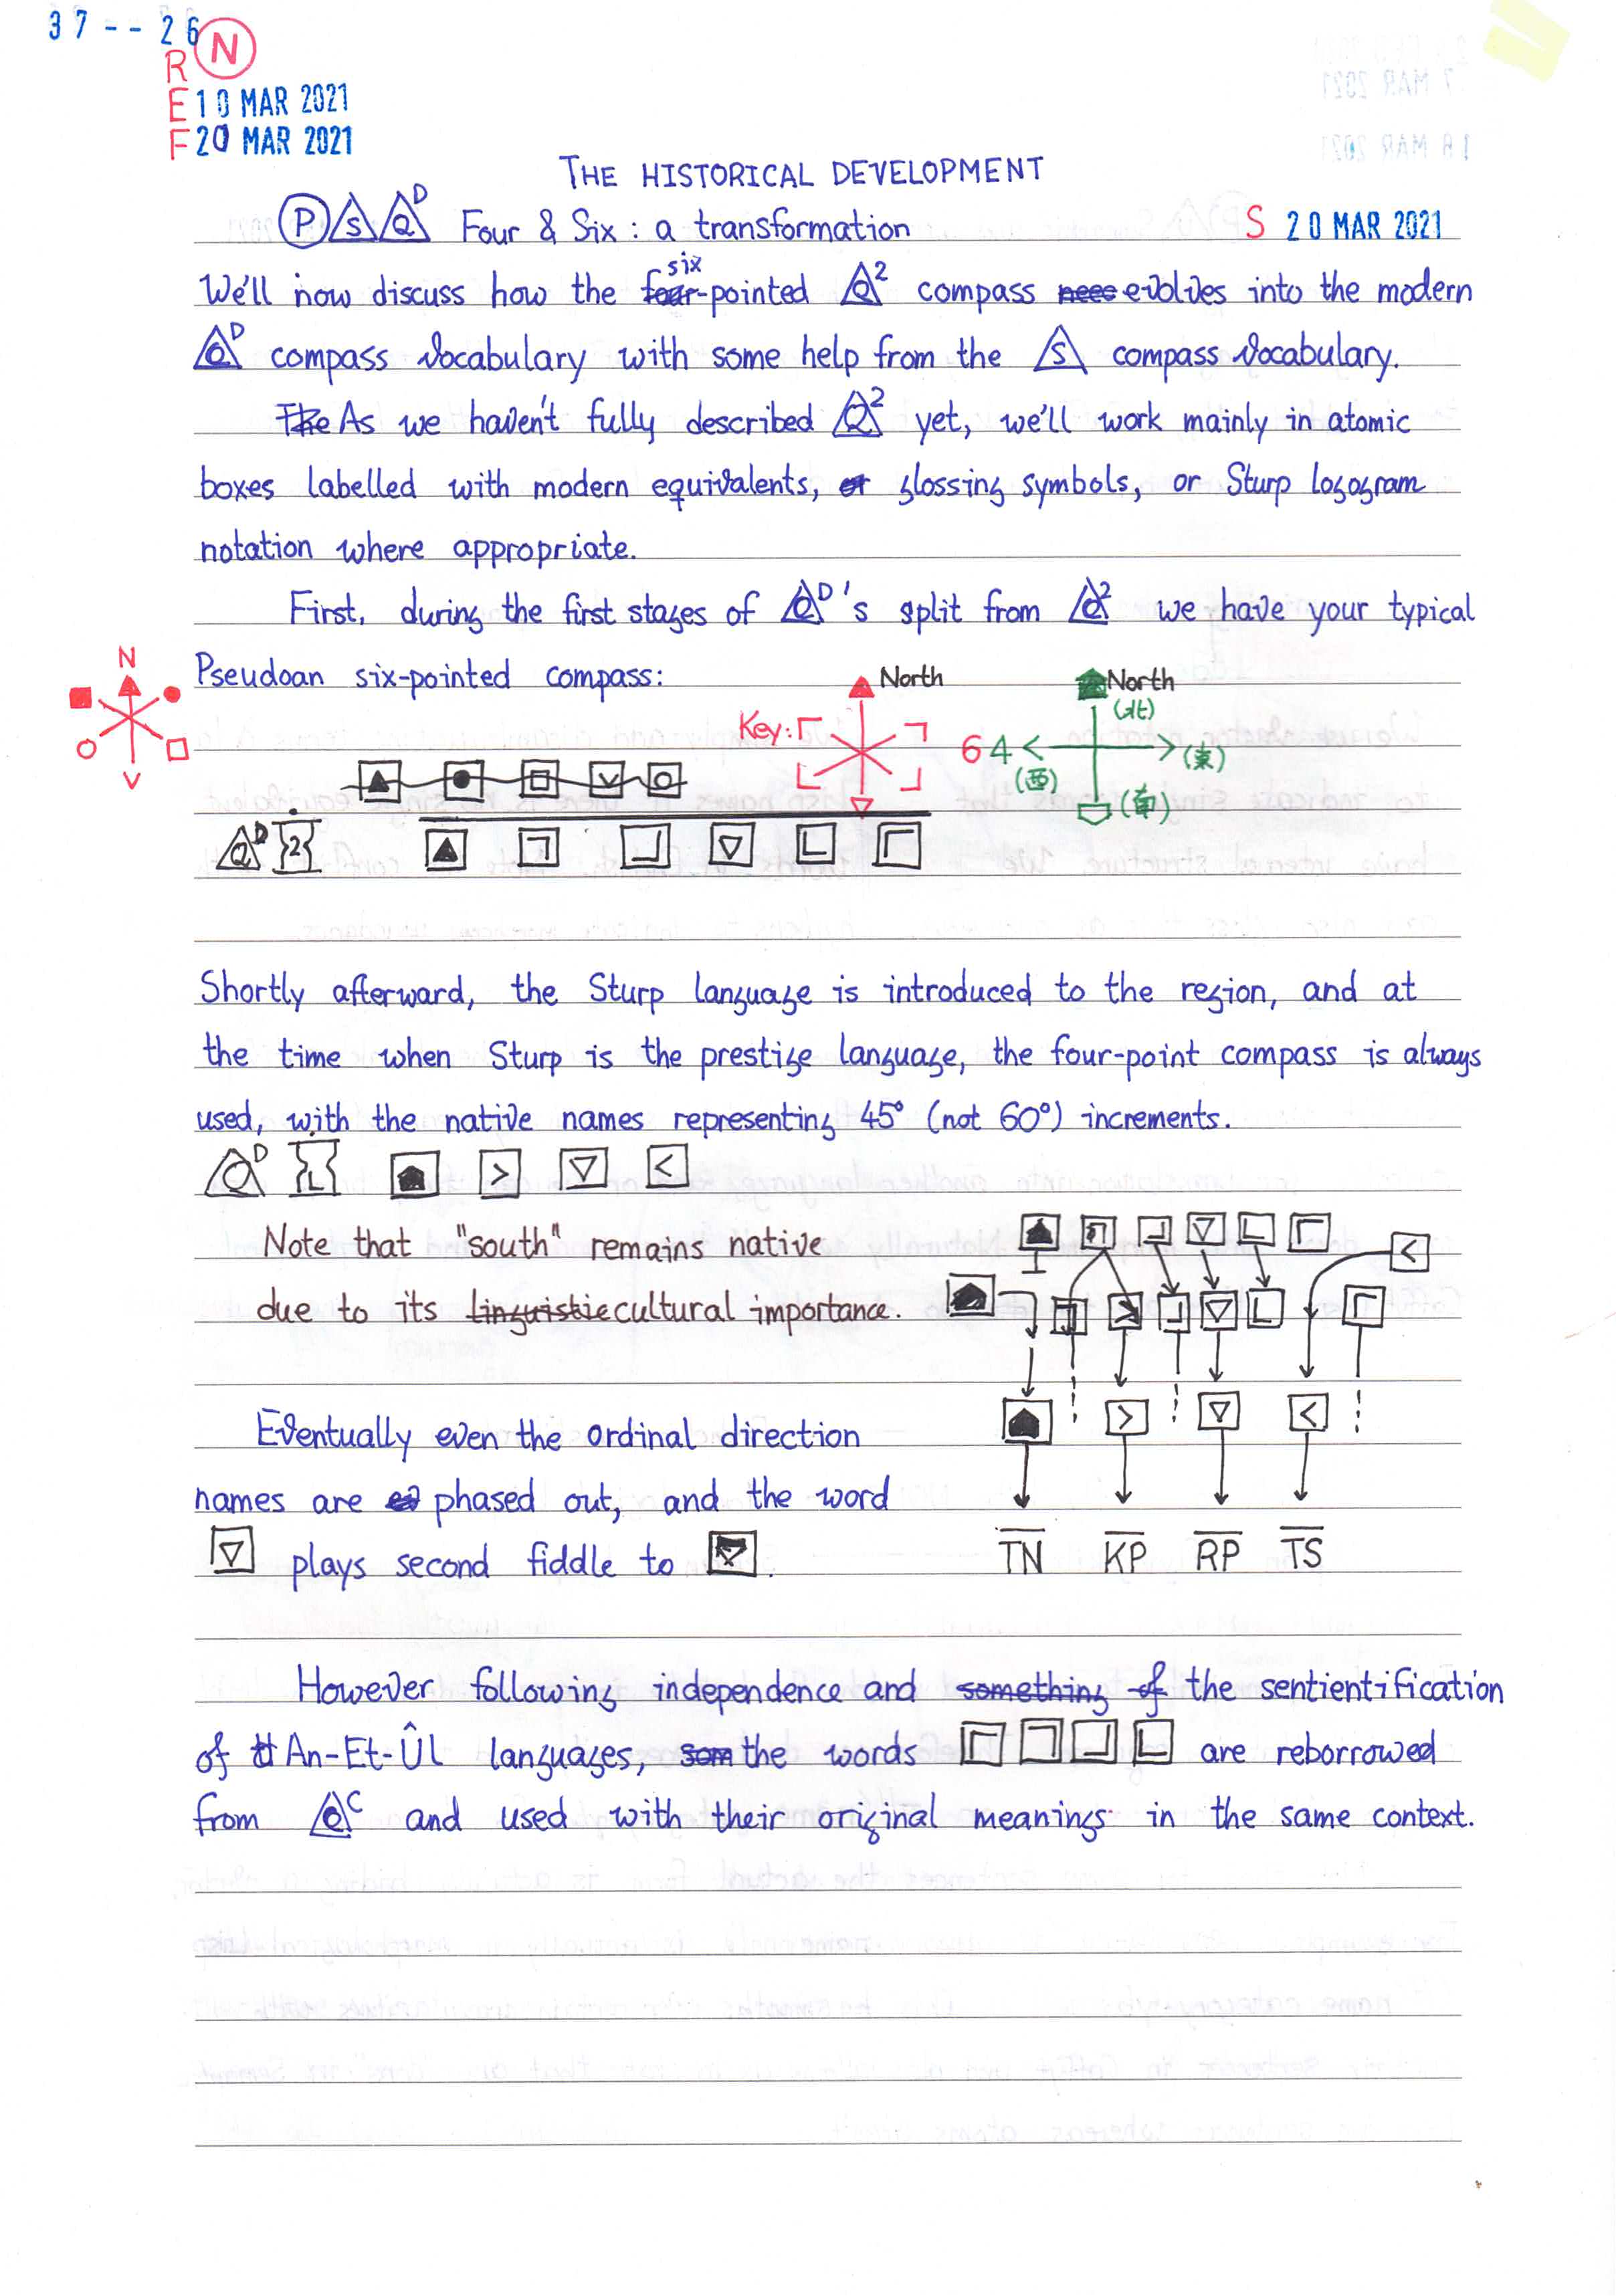 37--26
N
R
E 10 MAR 2021
F 20 MAR 2021
THE HISTORICAL DEVELOPMENT
P S Q D Four & Six : a transformation S 20 MAR 2021
We'll now discuss how the four six-pointed Q2 compass evolves into the modern
QD compass vocabulary with some help from the S compass vocabulary.
The As we haven't fully described Q2 yet, we'll work mainly in atomic
boxes labelled with modern equivalents, or glossing symbols, or Sturp logogram
notation where appropriate.
First, during the first stages of QD's split from Q2 we have your typical
Pseudoan six-pointed compass:
N
V
Key: North 6
4 North (北) (東) (南) (西)
QD 2
Shortly afterward, the Sturp language is introduced to the region, and at
the time when Sturp is the prestige language, the four-point compass is always
used, with the native names representing 45° (not 60°) increments.
QD > ▽ <
Note that "south" remains native
due to its linguistic cultural importance.
Eventually even the ordinal direction
names are phased out, and the word
▽ plays second fiddle to .
TN KP RP TS
However following independence and something of the sentientification
of An-Et-Ûl languages, som the words are reborrowed
from QC and used with their original meanings in the same context.